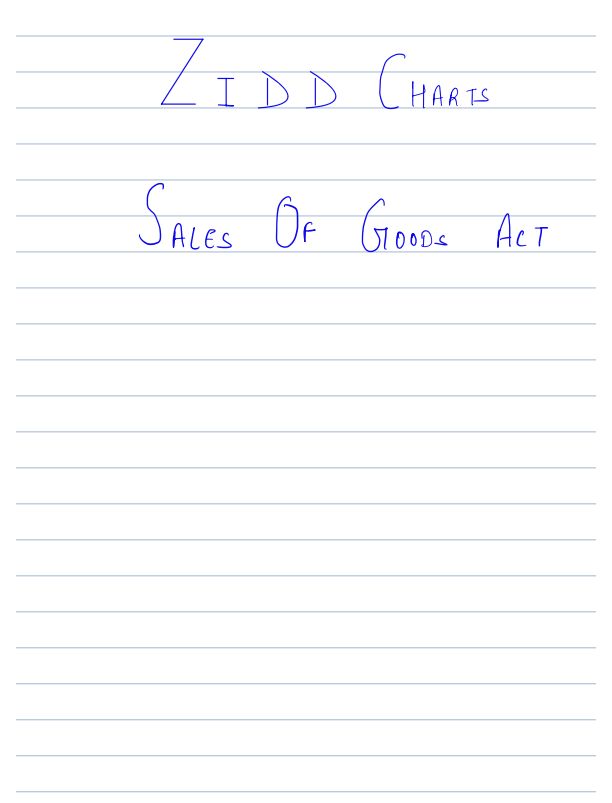 ZIDD CHARTS
SALES OF GOODS ACT